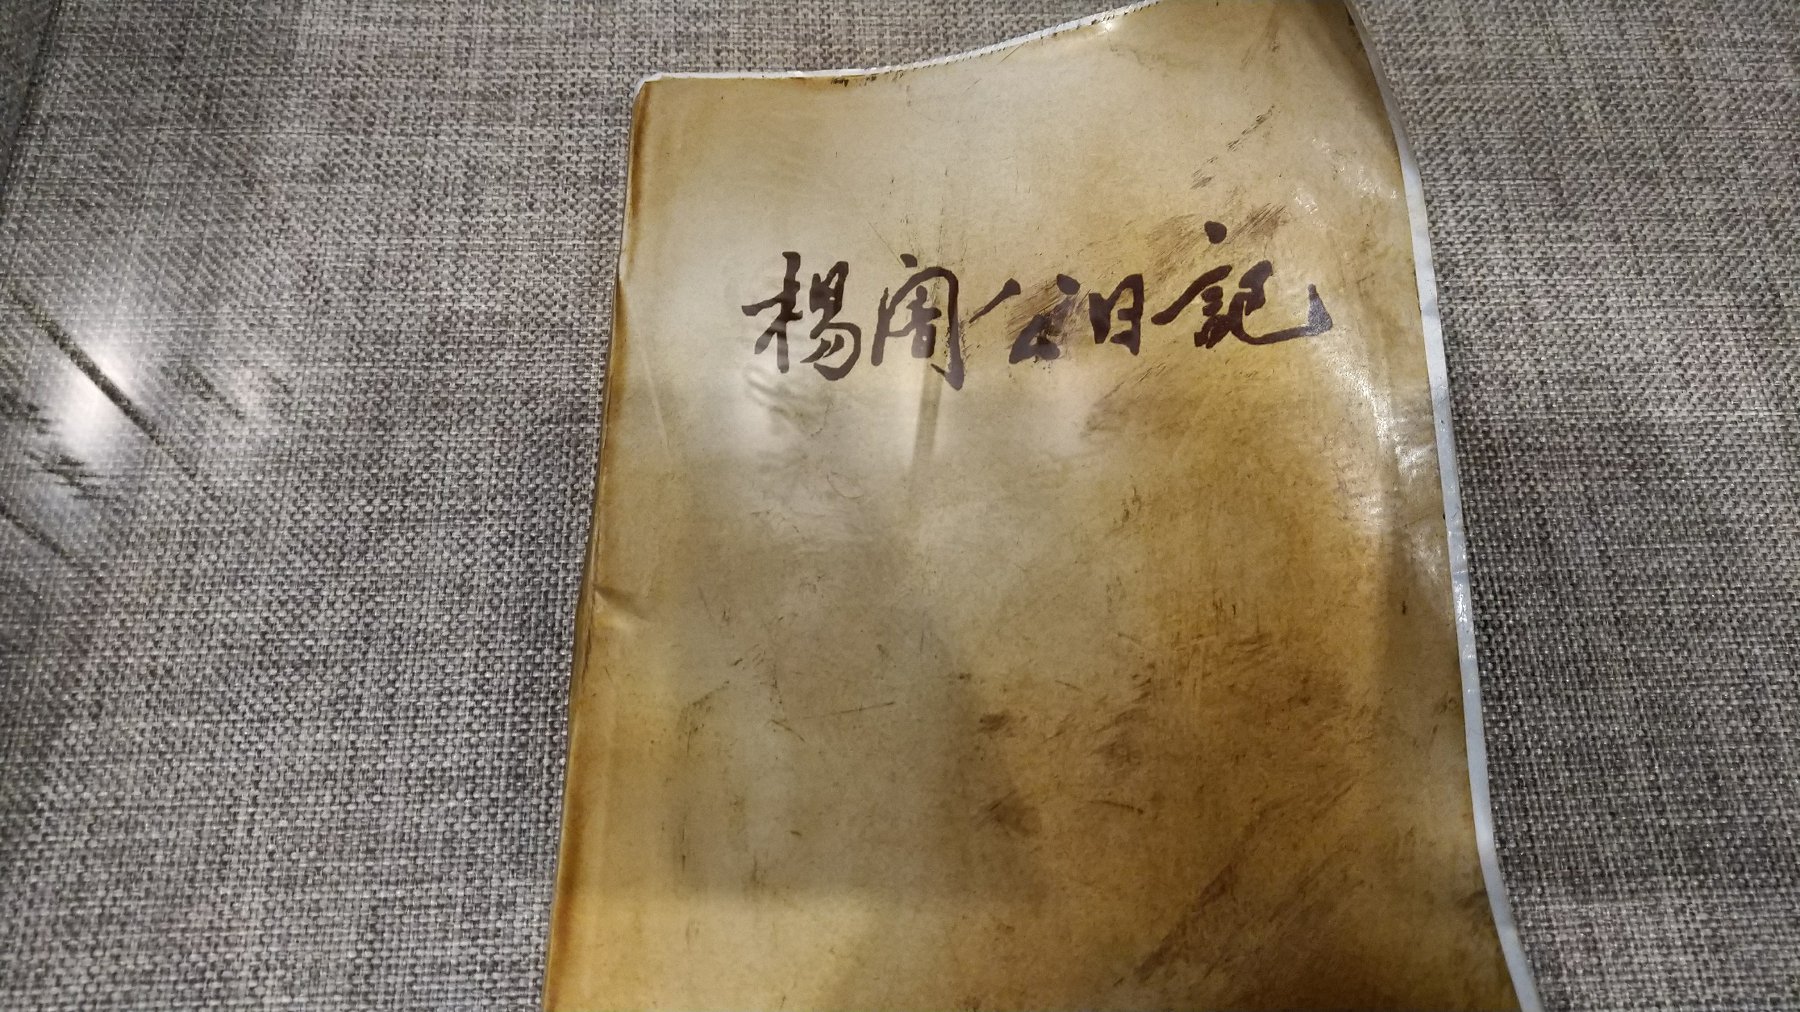 楊闇公日記